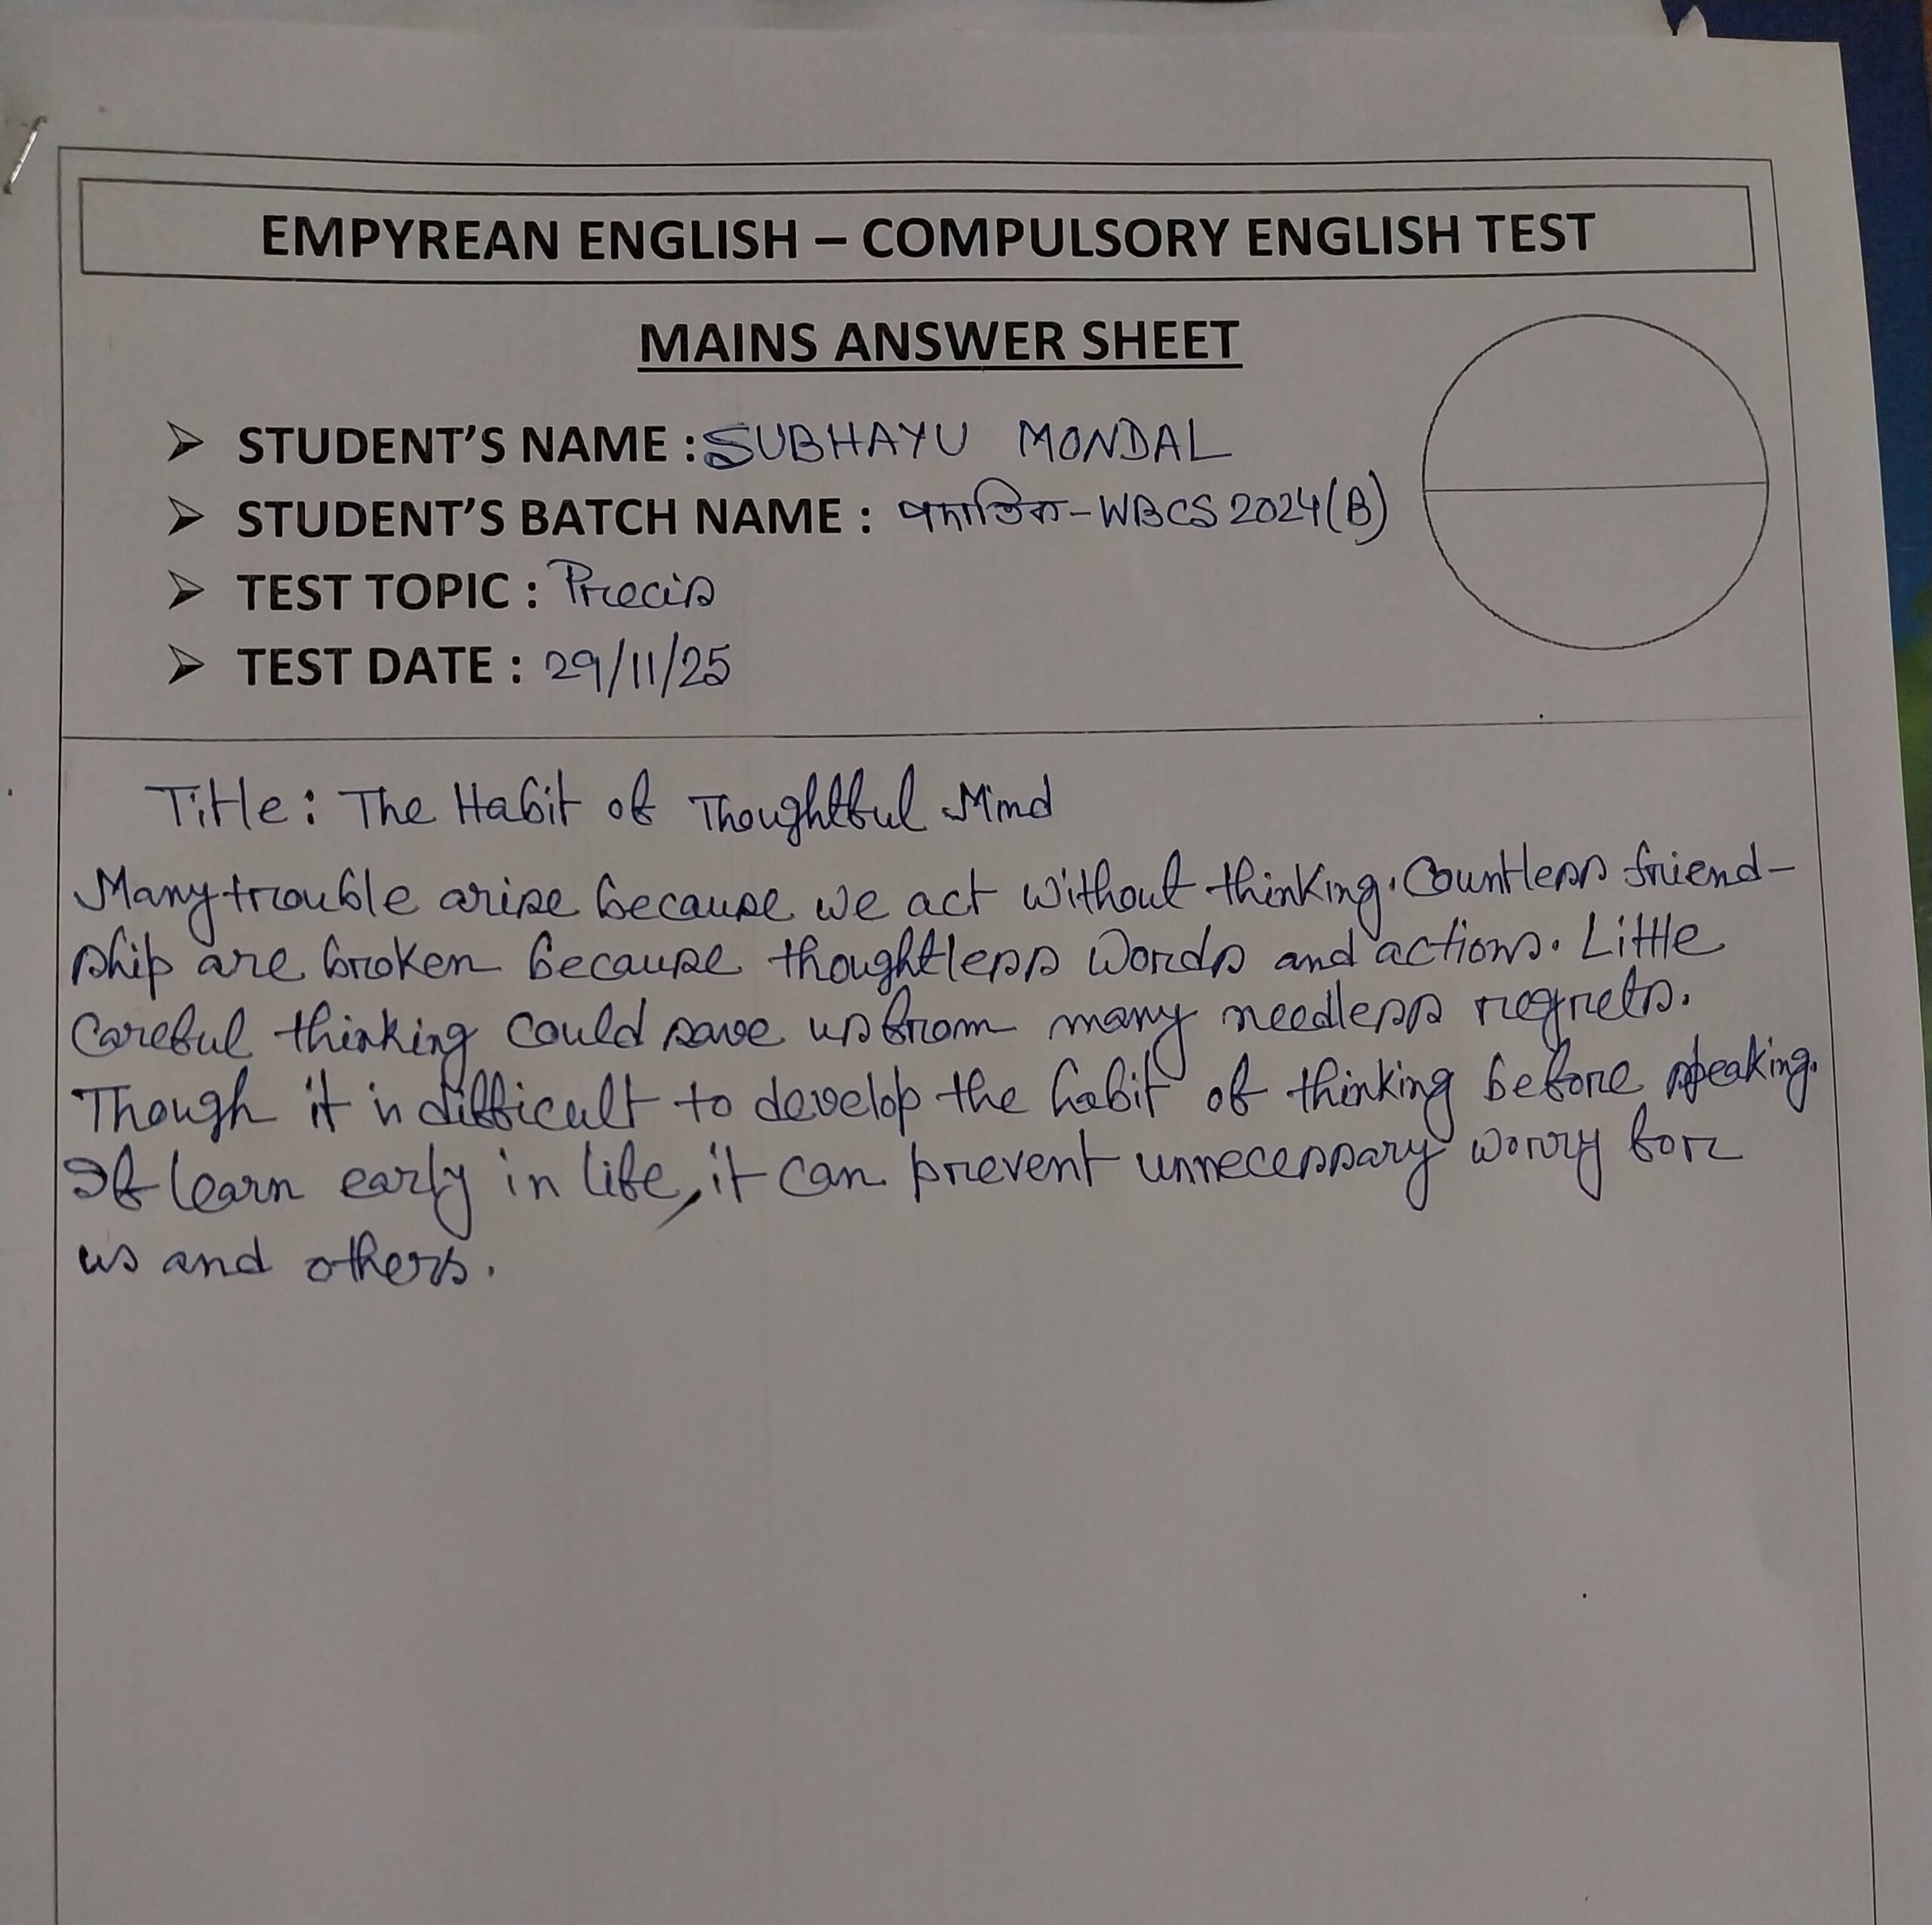 EMPYREAN ENGLISH – COMPULSORY ENGLISH TEST
MAINS ANSWER SHEET
➢ STUDENT'S NAME : SUBHAYU MONDAL
➢ STUDENT'S BATCH NAME : পদাতিক-WBCS 2024(B)
➢ TEST TOPIC : Precis
➢ TEST DATE : 29/11/25
Title: The Habit of Thoughtful Mind
Many trouble arise because we act without thinking. Countless friend-
ship are broken because thoughtless words and actions. Little
Careful thinking could save us from many needless regrets.
Though it is difficult to develop the habit of thinking before speaking.
If learn early in life, it can prevent unnecessary worry for
us and others.